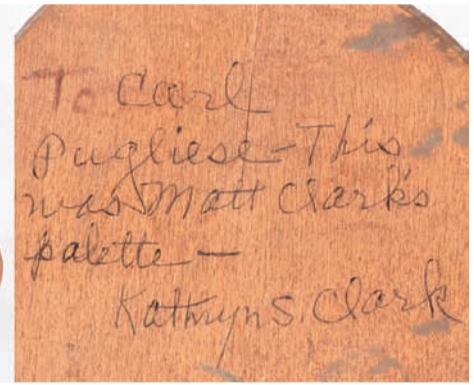 To Carl
Pugliese - This
was Matt Clark's
palette -
Kathryn S. Clark